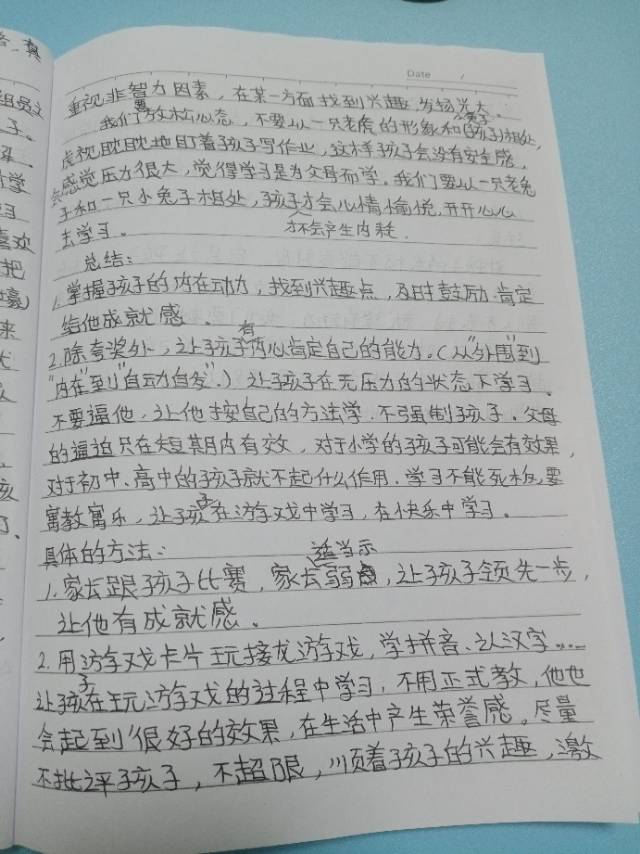 Date /
重视非智力因素，在某一方面找到兴趣，发扬光大。
我们要放松心态，不要以一只老虎的形象和小兔子(孩子)相处，
虎视眈眈地盯着孩子写作业，这样孩子会没有安全感，
会感觉压力很大，觉得学习是为父母而学。我们要以一只老兔
子和一只小兔子相处，孩子才会心情愉悦，开开心心
去学习。才不会产生内耗．
总结：
1.掌握孩子的内在动力，找到兴趣点，及时鼓励．肯定
给他成就感．
2.除夸奖外，让孩子有内心肯定自己的能力。(从"外围"到
"内在"到"自动自发".) 让孩子在无压力的状态下学习．
不要逼他，让他按自己的方法学．不强制孩子．父母
的逼迫只在短期内有效，对于小学的孩子可能会有效果，
对于初中、高中的孩子就不起什么作用．学习不能死板，要
寓教寓乐，让孩子在游戏中学习，在快乐中学习。
具体的方法：
1.家长跟孩子比赛，家长适当示弱，让孩子领先一步，
让他有成就感。
2.用游戏卡片玩接龙游戏，学拼音、认汉字……
让孩子在玩游戏的过程中学习，不用正式教，他也
会起到很好的效果，在生活中产生荣誉感，尽量
不批评孩子，不超限，顺着孩子的兴趣，激